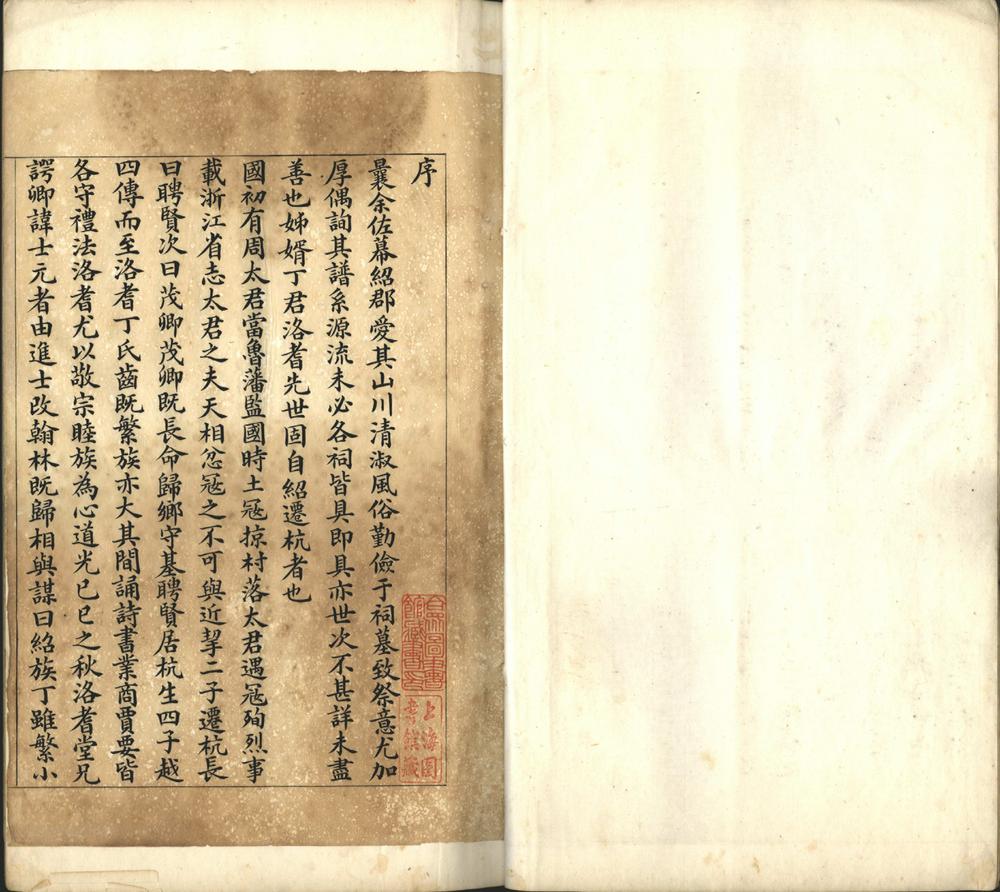 序
曩余佐幕紹郡愛其山川清淑風俗勤儉于祠墓致祭意尤加
厚偶詢其譜系源流未必各祠皆具即具亦世次不甚詳未盡
善也姊婿丁君洛耆先世固自紹遷杭者也
國初有周太君當魯藩監國時土冦掠村落太君遇冦殉烈事
載浙江省志太君之夫天相忿冦之不可與近挈二子遷杭長
曰聘賢次曰茂卿茂卿既長命歸鄉守墓聘賢居杭生四子越
四傳而至洛耆丁氏齒既繁族亦大其間誦詩書業商賈要皆
各守禮法洛耆尤以敬宗睦族為心道光己巳之秋洛耆堂兄
諤卿諱士元者由進士改翰林既歸相與謀曰紹族丁雖繁小
圖書
館藏書
上海圖
書館藏